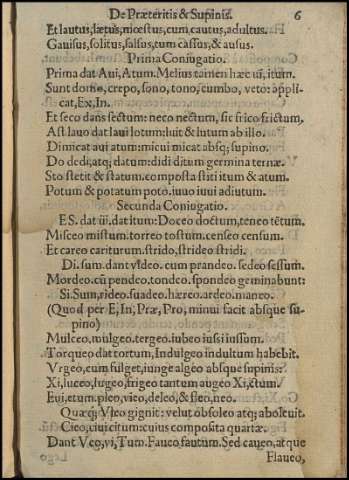 De Præteritis & Supinis. 6
Et lautus, lætus, mœstus, cum, cautus, adultus.
Gavisus, solitus, salsus, tum cassus, & ausus.
Prima Coniugatio.
Prima dat Avi, Atum. Melius tamen hæc ui, itum.
Sunt domo, crepo, sono, tono, cumbo, veto: appli-
cat, Ex, In.
Et seco dans sectum: neco nectum, sic frico frictum.
Ast lavo dat lavi lotum: luit & lutum ab illo.
Dimicat avi atum: micui micat absq; supino.
Do dedi, atq; datum: didi ditum germina ternæ.
Sto stetit & statum. composta stiti itum & atum.
Potum & potatum poto. iuvo iuvi adiutum.
Secunda Coniugatio.
ES. dat ui. dat itum: Doceo doctum, teneo tētum.
Misceo mistum. torreo tostum. censeo censum.
Et careo cariturum. strido, strideo stridi.
Di. sum. dant video. cum prandeo. sedeo sessum.
Mordeo. cū pendeo, tondeo. spondeo geminabunt:
Si. Sum, rideo. suadeo. hæreo. ardeo. maneo.
(Quod per E, In, Præ, Pro, minui facit absque su-
pino)
Mulceo, mulgeo. tergeo. iubeo iussi iussum.
Torqueo dat tortum, Indulgeo indultum habebit.
Vrgeo, cum fulget, iunge algeo absque supinis:
Xi, luceo, lugeo, frigeo tantum augeo Xi, ctum.
Evi, etum. pleo, vieo, deleo, & fleo, neo.
Quæq; Vico gignit: velut obsoleo atq; abolevit.
Cieo, civi citum: cuius composita quartæ.
Dant Veo, vi, Tum. Faveo fautum. Sed caveo, atque
Flaveo,